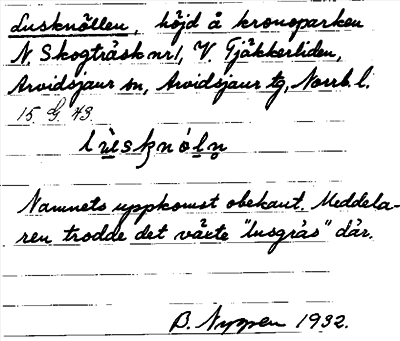 Lusknöllen, höjd å kronoparken
N. Skogträsk nr 1, V. Tjäkkerliden,
Arvidsjaur sn, Arvidsjaur tg, Norrb. l.
15 G. 43
Namnets uppkomst obekant. Meddela-
ren trodde det växte "lusgräs" där.
B. Nyppen 1932.